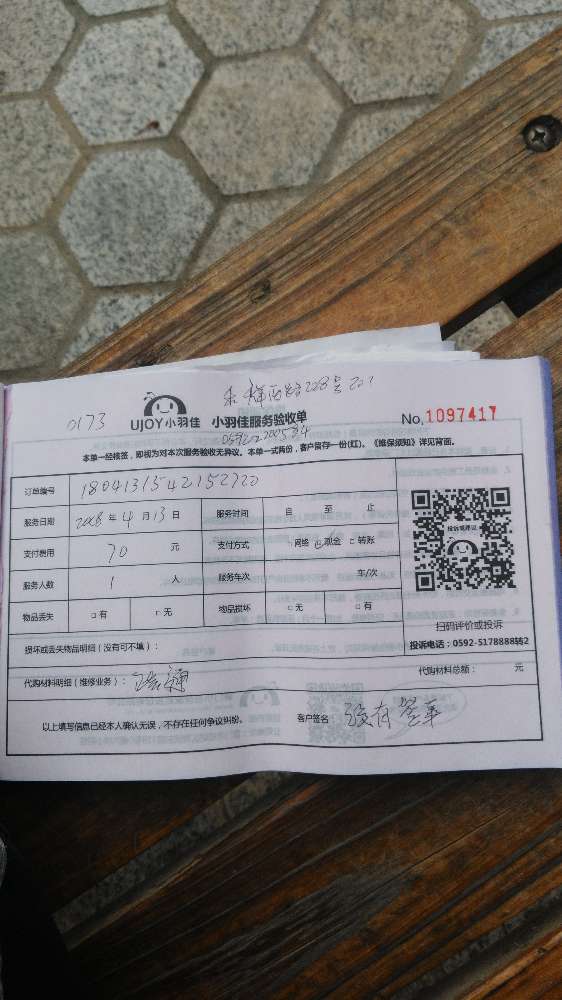 0173
UJOY小羽佳 小羽佳服务验收单 No.1097417
本单一经核签，即视为对本次服务验收无异议。本单一式两份，客户留存一份(红)。《维保须知》详见背面。
订单编号 1804131542152720
服务日期 2008 年 4 月 13 日 服务时间 自 至 止
支付费用 70 元 支付方式 □网络 □现金 □转账
服务人数 1 人 服务车次 车/次
物品丢失 □有 □无 物品损坏 □无 □有
扫码评价或投诉
投诉电话：0592-5178888转2
损坏或丢失物品明细（没有可不填）：
代购材料明细（维修业务）： 代购材料总额： 元
以上填写信息已经本人确认无误，不存在任何争议纠纷。 客户签名：